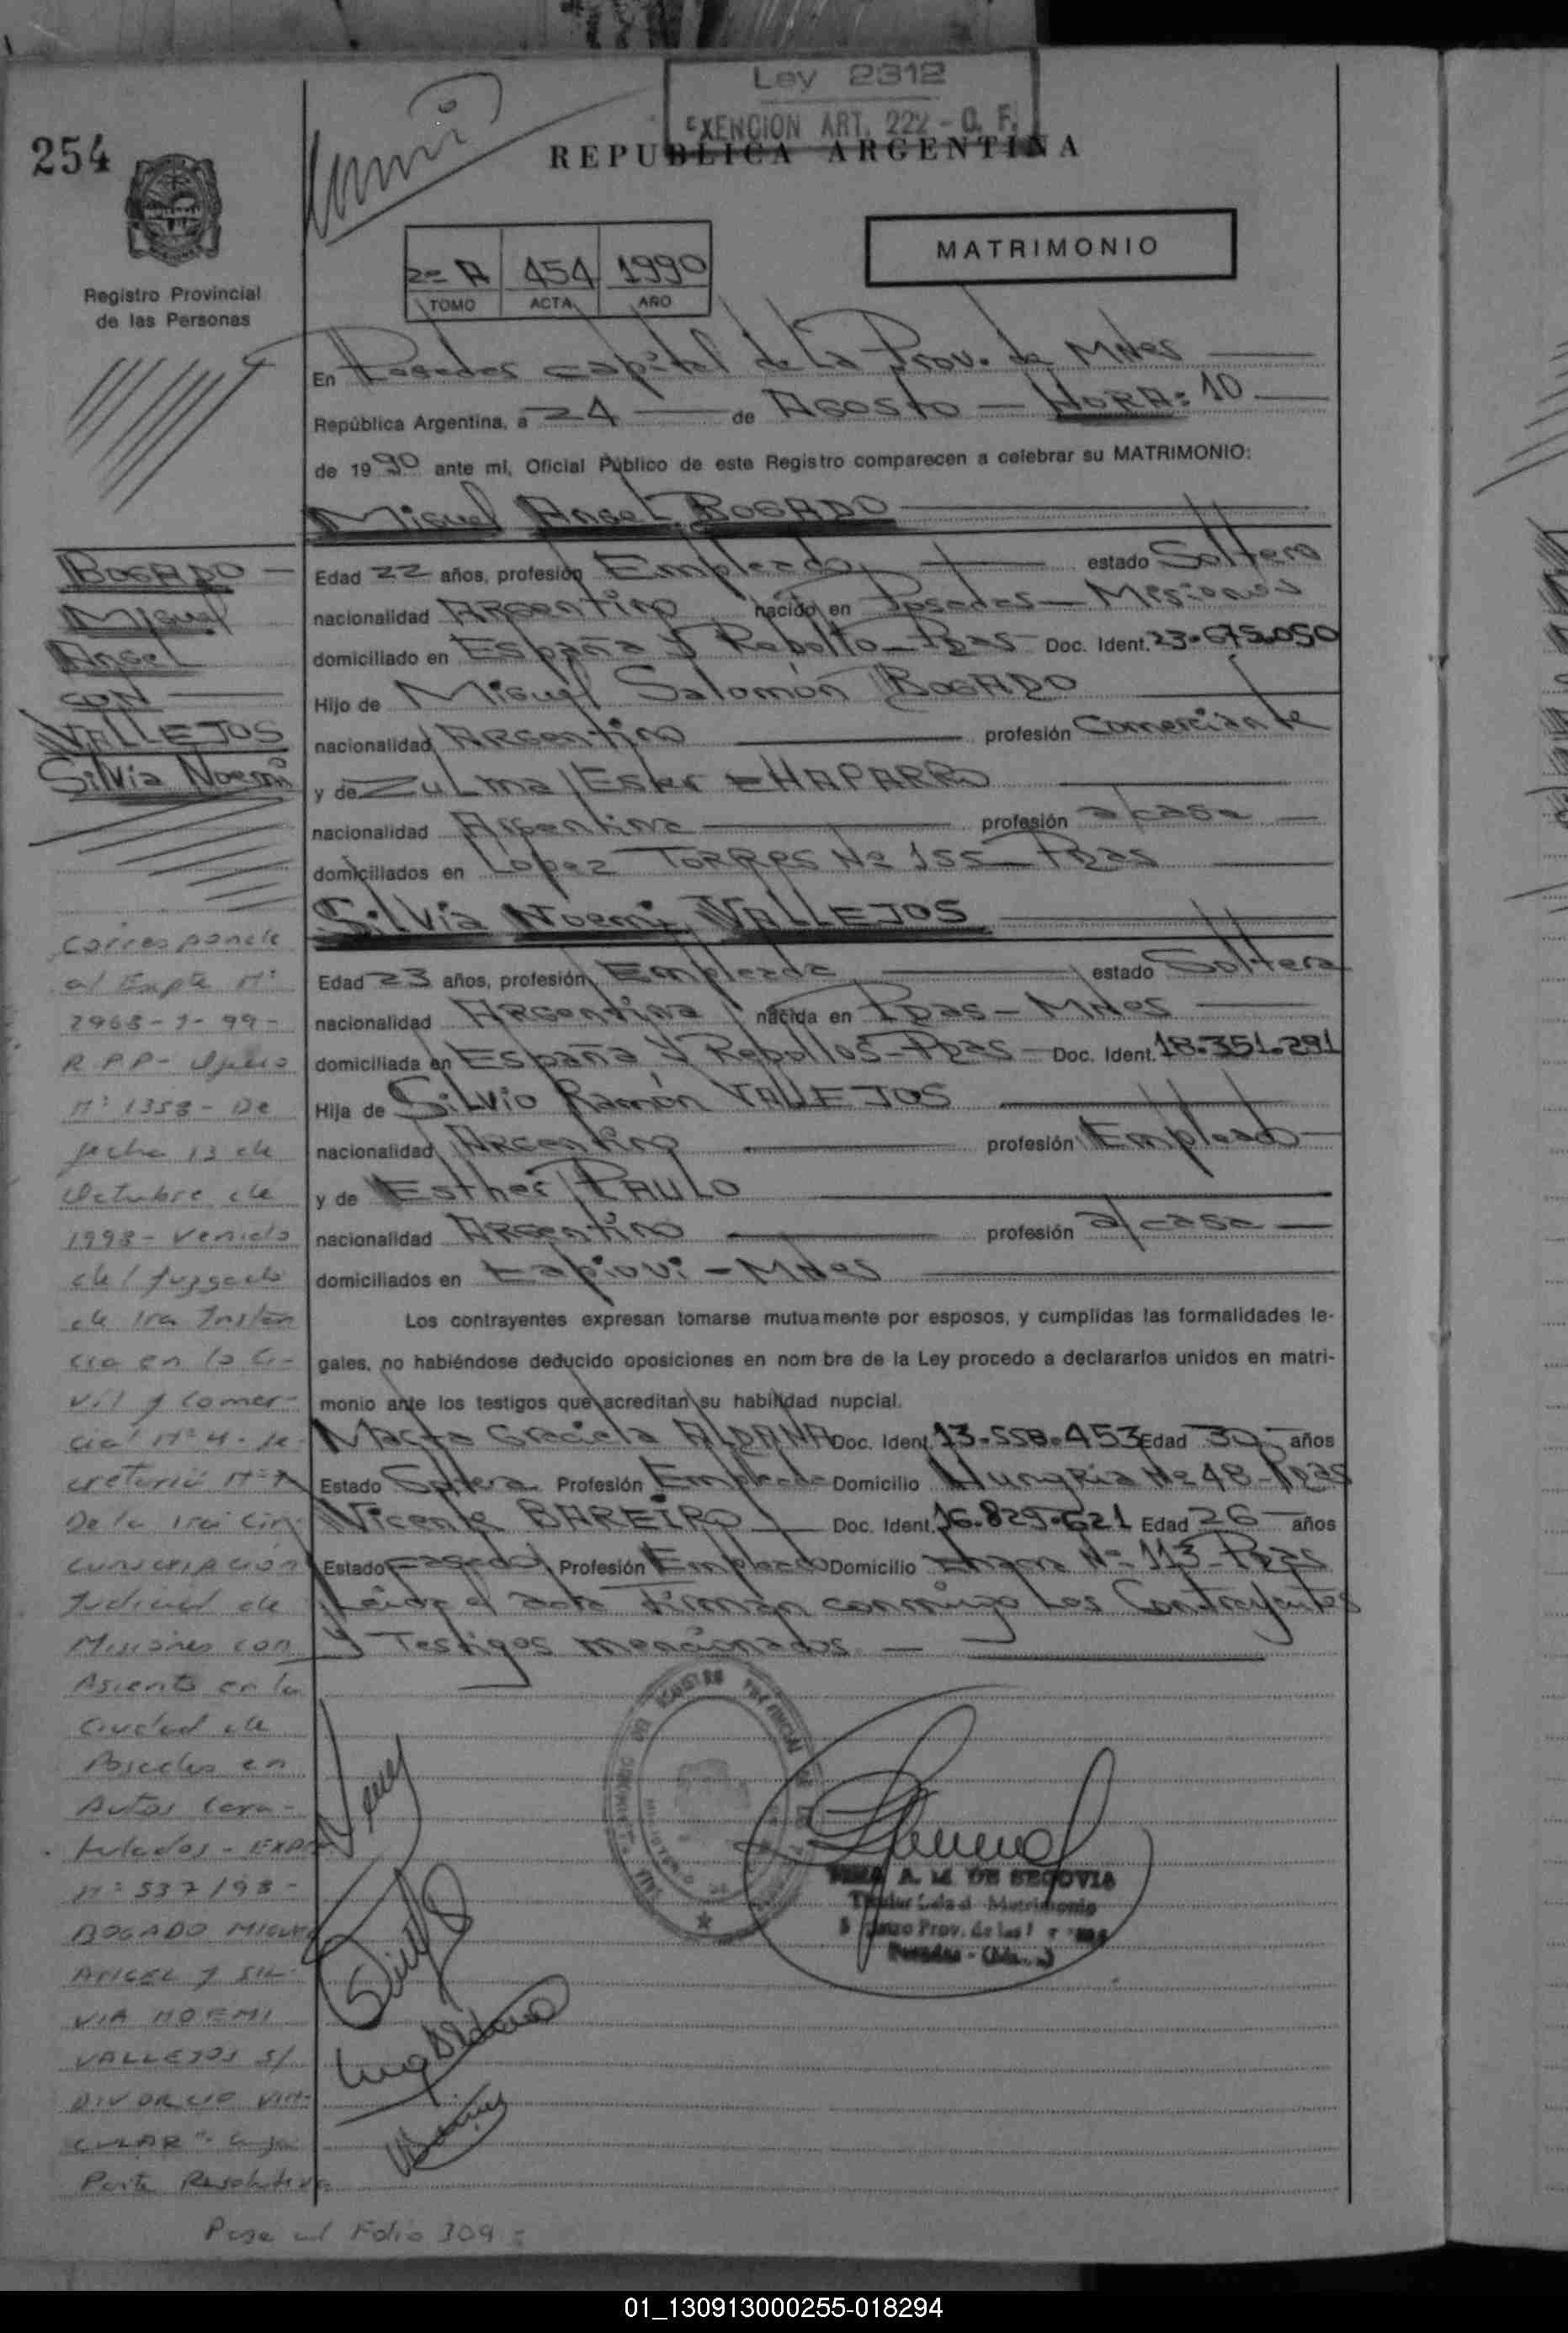 Ley 2312
EXENCION ART. 222 - O. F.
REPUBLICA ARGENTINA
254
Registro Provincial
de las Personas
2º A 454 1990
TOMO ACTA AÑO
MATRIMONIO
En Posadas capital de la Prov. de Mnes
República Argentina, a 24 de Agosto - HORA: 10
de 1990 ante mí, Oficial Público de este Registro comparecen a celebrar su MATRIMONIO:
Miguel Angel BOGADO
Edad 22 años, profesión Empleado estado Soltero
nacionalidad Argentino nacido en Posadas - Misiones
domiciliado en España y Rebollo - Pdas Doc. Ident. 23.675.050
Hijo de Miguel Salomón BOGADO
nacionalidad Argentino profesión Comerciante
y de Zulma Ester CHAPARRO
nacionalidad Argentina profesión a/casa
domiciliados en Lopez TORRES Nº 155 - Pdas
Silvia Noemi VALLEJOS
Edad 23 años, profesión Empleada estado Soltera
nacionalidad Argentina nacida en Pdas - Mnes
domiciliada en España y Rebollos - Pdas - Doc. Ident. 18.351.291
Hija de Silvio Ramón VALLEJOS
nacionalidad Argentino profesión Empleado
y de Esther PAULO
nacionalidad Argentino profesión a/casa
domiciliados en Capiovi - Mnes
Los contrayentes expresan tomarse mutuamente por esposos, y cumplidas las formalidades le-
gales, no habiéndose deducido oposiciones en nom bre de la Ley procedo a declararlos unidos en matri-
monio ante los testigos que acreditan su habilidad nupcial.
Marta Graciela ALDANA Doc. Ident. 13.558.453 Edad 30 años
Estado Soltera Profesión Empleada Domicilio Hungria Nº 48 - Pdas
Vicente BAREIRO Doc. Ident. 16.829.621 Edad 26 años
Estado Casado Profesión Empleado Domicilio Nº 113 - Pdas
Leida el acta Firman conmigo Los Contrayentes
y Testigos mencionados
A. M. DE SEGOVIA
Posadas
BOGADO
Miguel
Angel
CON
VALLEJOS
Silvia Noemi
Corresponde
al Expte Nº
2968-J-99-
R.P.P- Oficio
Nº 1358 - De
fecha 13 de
Octubre de
1998 - Venido
del Juzgado
de 1ra Instan
cia en lo Ci-
vil y Comer-
cial Nº 4 - Se-
cretaria Nº 7
De la 1ra Cir-
cunscripción
Judicial de
Misiones con
Asiento en la
Ciudad de
Posadas en
Autos Cara-
tulados - EXPTE
Nº 537/98 -
BOGADO MIGUEL
ANGEL Y SIL-
VIA NOEMI
VALLEJOS S/
DIVORCIO VIN-
CULAR". Cuya
Parte Resolutiva
Pasa al Folio 309
01_130913000255-018294